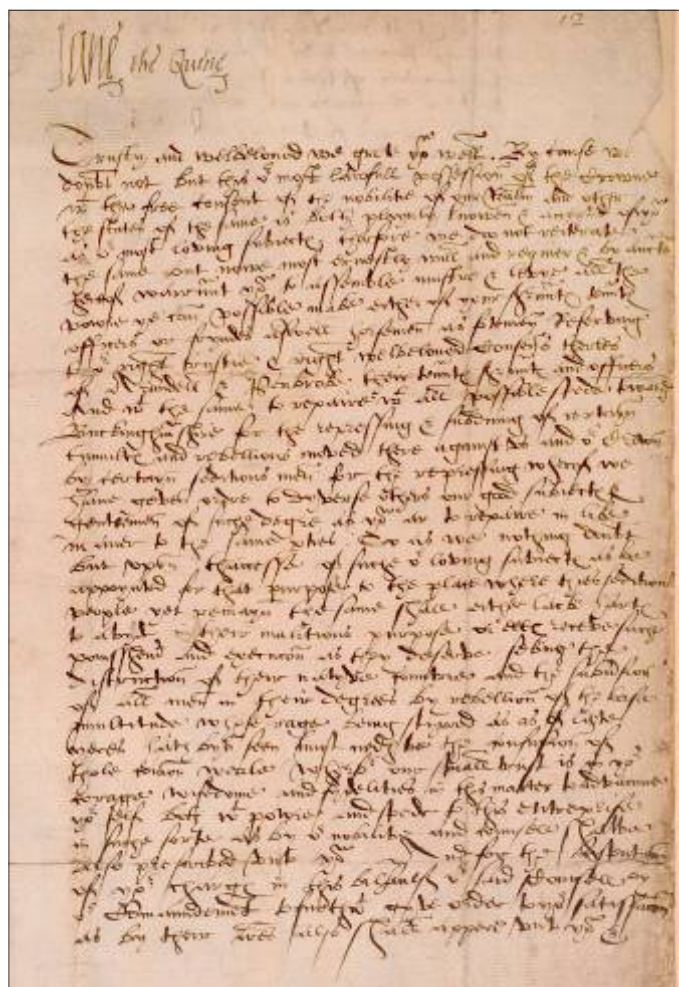 12
Jane the Quene
Trusty and welbeloved we grete you well. By cause we
doubt not but this our most laufull possession of the Crowne
wt the free consent of the nobilitie of our Realm and other
the states of the same is both plainly knowen &
as our most loving subjects therfore we do not reiterate
the same but nowe most ernestly will and require &
warraunt you to assemble muster & levie all the
powre ye can possible make either of your
officers or frendes aswell horsemen as fotemen Reserving
to our right trustie & right welbeloved Cousens Therles
of Arundell & Penbroke their and officers
And wt the same to repaire wt all possible spede towards
Buckinghamshire for the repressing & subduing of certain
tumultes and rebellions moved there against us and our Crown
by certain seditious men for the repressing wherof we
have geven ordre to diverse others our good subjects
gentlemen of suche degre as you ar to repaire in like
maner to the same So as we nothing doubt
but upon of suche our loving subjects as be
appointed for that purpose to the place where thies seditious
people yet remayn the same shall either lack harts
to abyde their malitious purpose or els receive suche
and execution as they deserve seking the
distruction of their native countrie and the
of all men in their degrees by rebellion of the base
multitude whose rage being stirred as of late
yeres hath ben seen must nedes be the confusion of
thole comon weale our trust is in your
corage wisedome and fidelities in this matter to advaunce
your self both wt powre and spede to this entreprise
in suche sorte as by our nobilitie and Counsell shalbe
also prescribed unto you And for the
of your charge in this behaulf our said Counsell by
our Comaundement furthwt give order to your satisfaction
as by their also shall appere unto you &